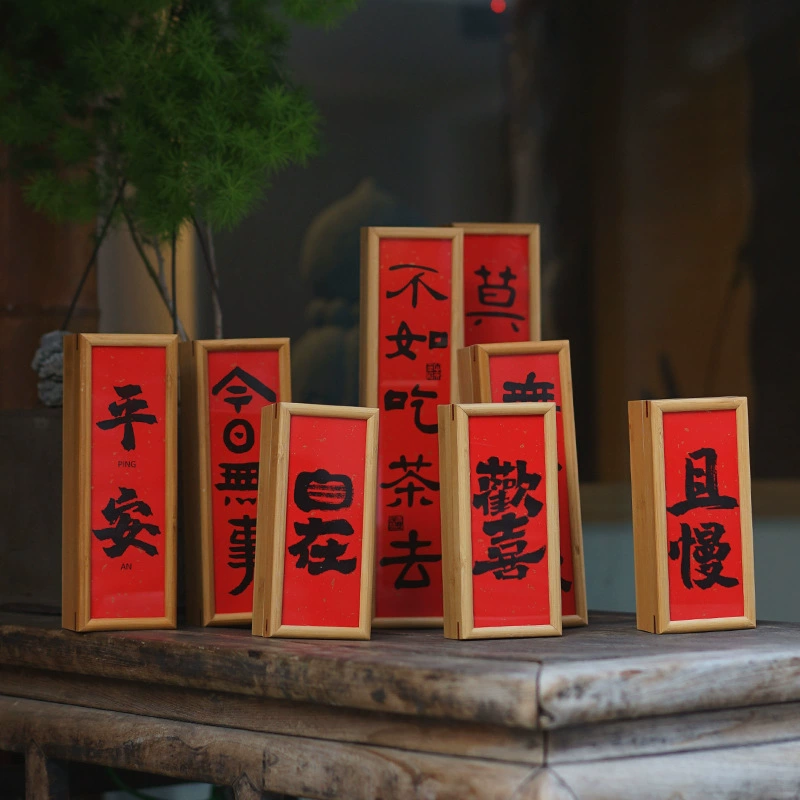 平
PING
安
AN
今日無事
自在
不如吃茶去
莫
歡喜
無
且慢